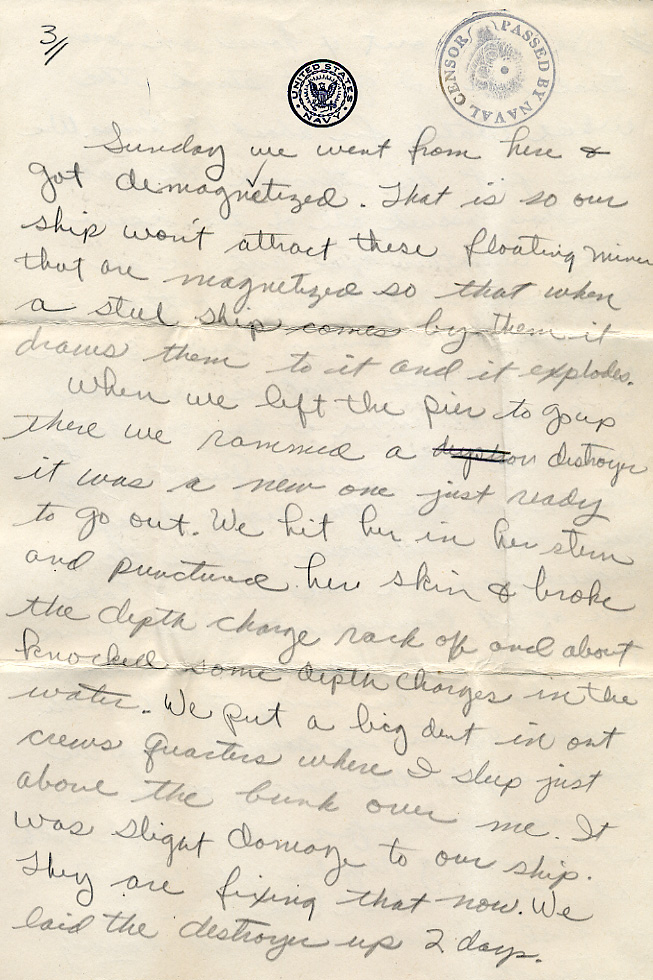 3/
UNITED STATES
NAVY
PASSED BY NAVAL CENSOR
Sunday we went from here &
got demagnetized. That is so our
ship won't attract these floating mines
that are magnetized so that when
a steel ship comes by them it
draws them to it and it explodes.
When we left the pier to go up
there we rammed a destroyer
it was a new one just ready
to go out. We hit her in her stern
and punctured her skin & broke
the depth charge rack off and about
knocked some depth charges in the
water. We put a big dent in out
crews quarters where I sleep just
above the bunk over me. It
was slight damage to our ship.
They are fixing that now. We
laid the destroyer up 2 days.